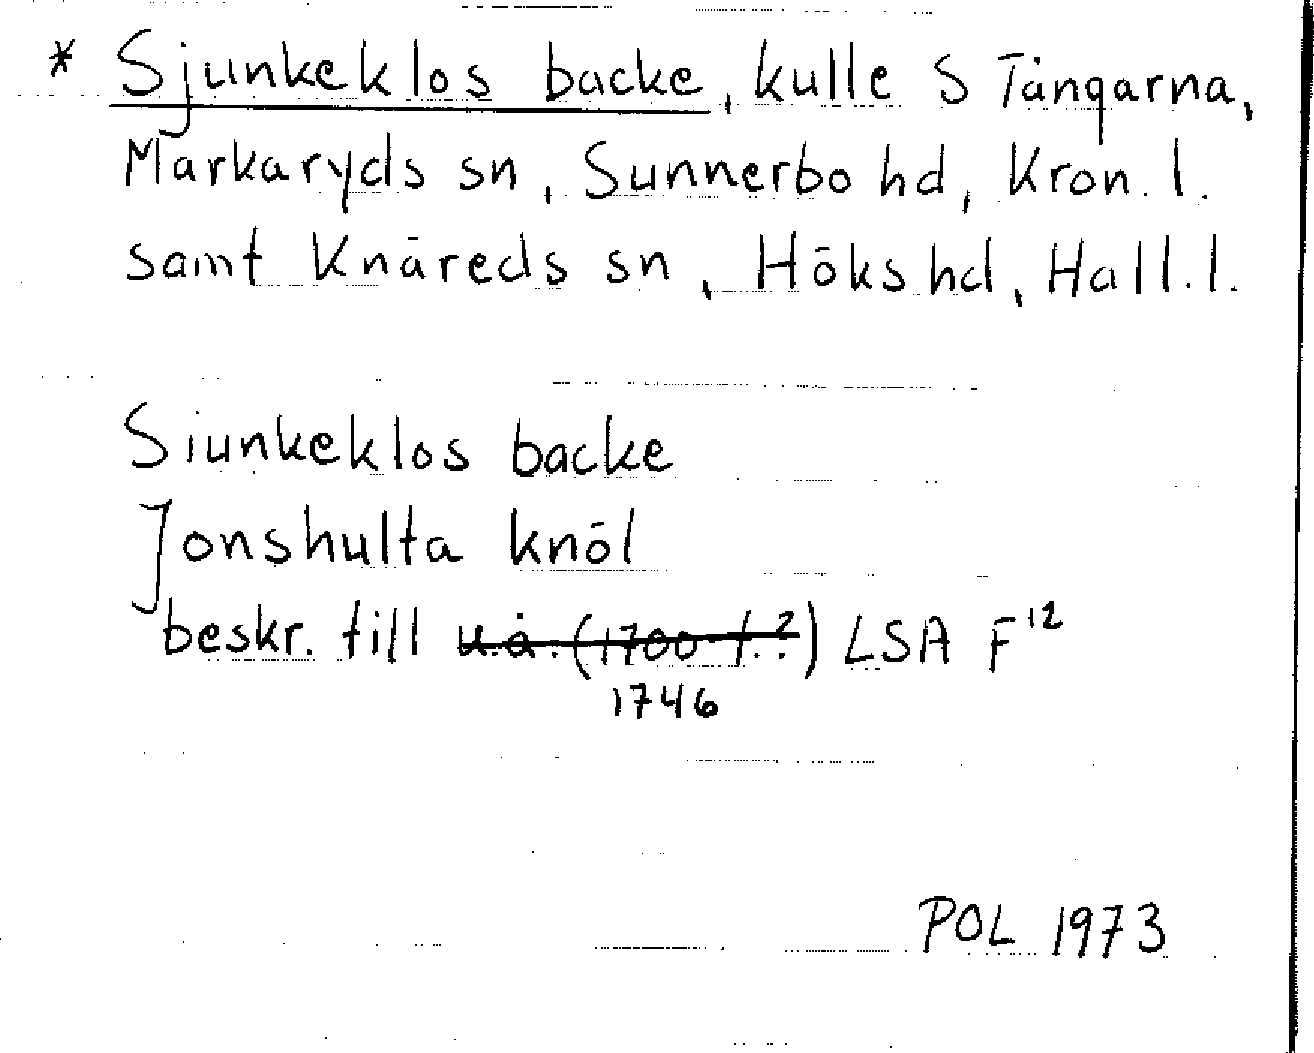 * Sjunkeklos backe, kulle S Tångarna,
Markaryds sn, Sunnerbo hd, Kron. l.
samt Knäreds sn, Höks hd, Hall. l.
Siunkeklos backe
Jonshulta knöl
beskr. till u.å. (1700-t.?) LSA F12
1746
POL 1973